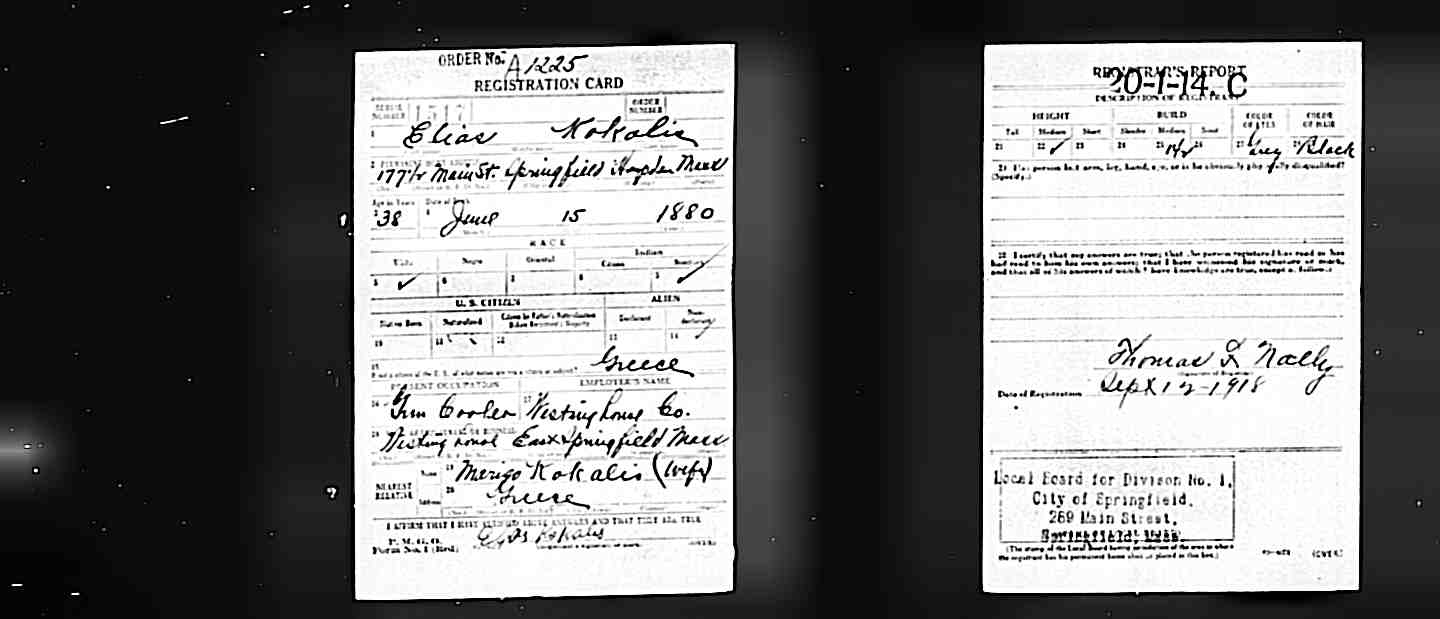 ORDER No. A 1225
REGISTRATION CARD
SERIAL NUMBER
ORDER NUMBER
1 Elias Kokalis
2 PERMANENT HOME ADDRESS
Main St. Springfield Hampden Mass
Age in Years Date of Birth
3 38 4 June 15 1880
RACE
White Negro Oriental Indian
Citizen Noncitizen
5 ✓ 6 7 8 9 ✓
U. S. CITIZEN ALIEN
Native Born Naturalized Citizen by Father's Naturalization Before Registrant's Majority Declarant Non-declarant
10 11 12 13 14 ✓
15 Greece
If not a citizen of the U. S., of what nation are you a citizen or subject?
PRESENT OCCUPATION EMPLOYER'S NAME
16 17 Westinghouse Co.
18
Westinghouse East Springfield Mass
NEAREST RELATIVE Name 19 Merigo Kokalis (Wife)
Address 20 Greece
I AFFIRM THAT I HAVE VERIFIED ABOVE ANSWERS AND THAT THEY ARE TRUE
P. M. G. O.
Form No. 1 (Red) Elias Kokalis
(OVER)
REGISTRAR'S REPORT
20-1-14. C
DESCRIPTION OF REGISTRANT
HEIGHT BUILD COLOR OF EYES COLOR OF HAIR
Tall Medium Short Slender Medium Stout
21 22 ✓ 23 24 25 26 27 Grey 28 Black
29 Has person lost arm, leg, hand, eye, or is he obviously physically disqualified?
(Specify.)
30 I certify that my answers are true; that the person registered has read or has
had read to him his own answers; that I have witnessed his signature or mark,
and that all of his answers of which I have knowledge are true, except as follows:
Thomas F. Nally
Date of Registration Sept 12 1918
Local Board for Divison No. 1,
City of Springfield,
269 Main Street,
Springfield, Mass.
(The stamp of the Local Board having jurisdiction of the area in which
the registrant has his permanent home shall be placed in this box.)
(OVER)